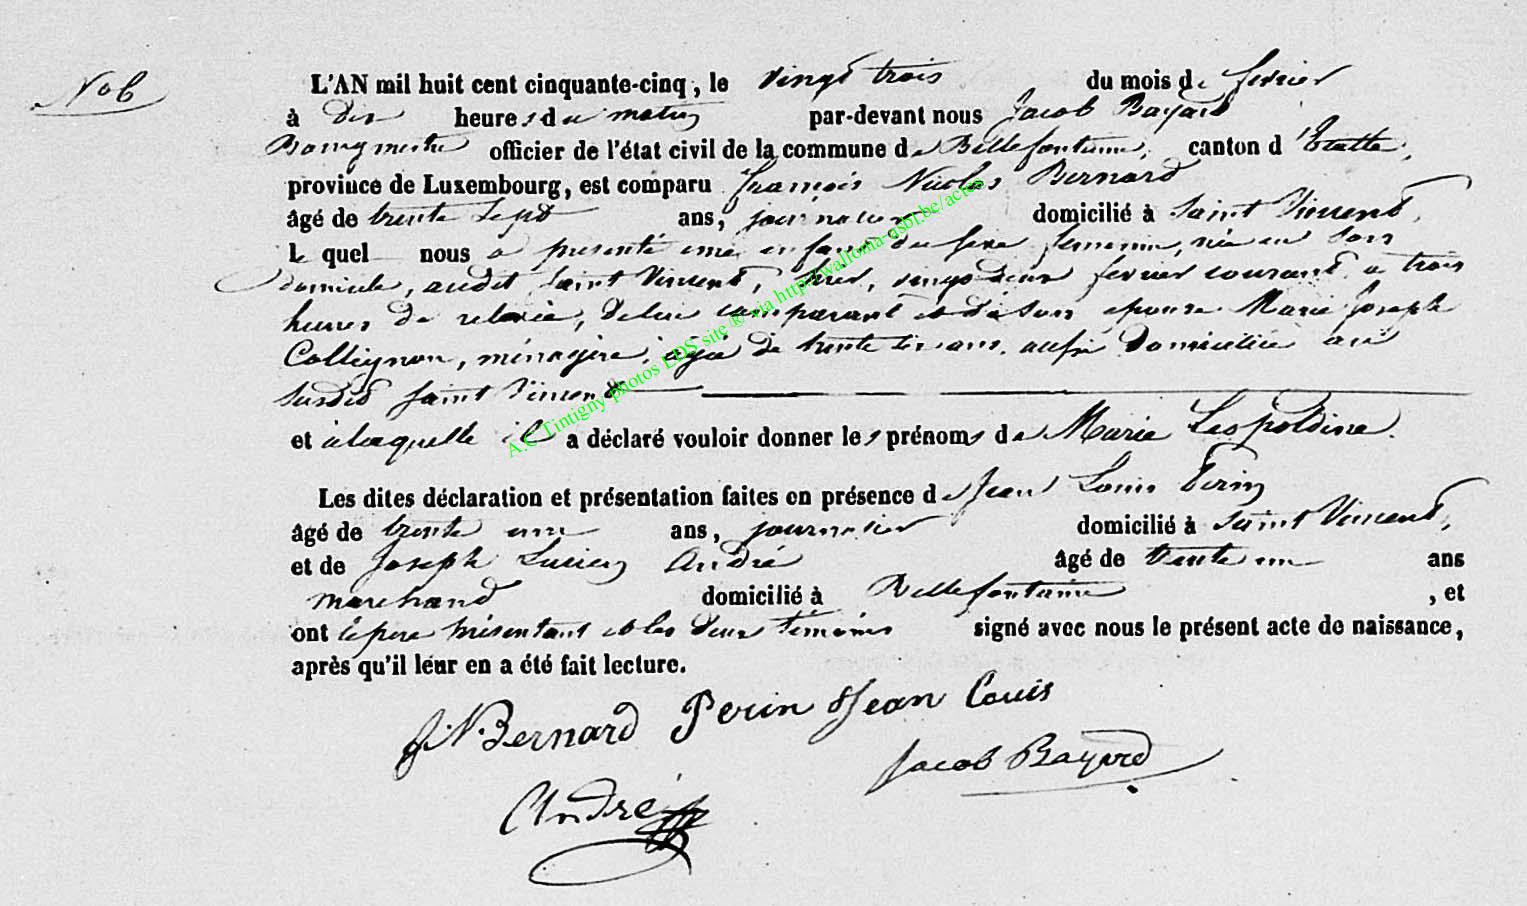 N° 6
L'AN mil huit cent cinquante-cinq, le vingt trois du mois de fevrier
à dix heures du matin par-devant nous Jacob Bayard
Bourgmestre officier de l'état civil de la commune de Bellefontaine, canton d'Etalle,
province de Luxembourg, est comparu François Nicolas Bernard
âgé de trente sept ans, journalier domicilié à Saint Vincent,
le quel nous a présenté une enfant du sexe feminin, née en son
domicile, audit Saint Vincent, hier, vingt deux fevrier courant à trois
heures de relevée, de lui comparant et de son epouse Marie Joseph
Collignon, ménagère, agée de trente ans, aussi domiciliée au
susdit Saint Vincent
et à laquelle il a déclaré vouloir donner les prénoms de Marie Leopoldine.
Les dites déclaration et présentation faites en présence de Jean Louis Perin
âgé de trente un ans, journalier domicilié à Saint Vincent,
et de Joseph Lucien André âgé de trente un ans
marchand domicilié à Bellefontaine, et
ont le pere présentant et les deux témoins signé avec nous le présent acte de naissance,
après qu'il leur en a été fait lecture.
f.N. Bernard Perin Jean Louis
Jacob Bayard
André
A.C. Tintigny photos LDS site ® via http://wallonia-asbl.be/actes